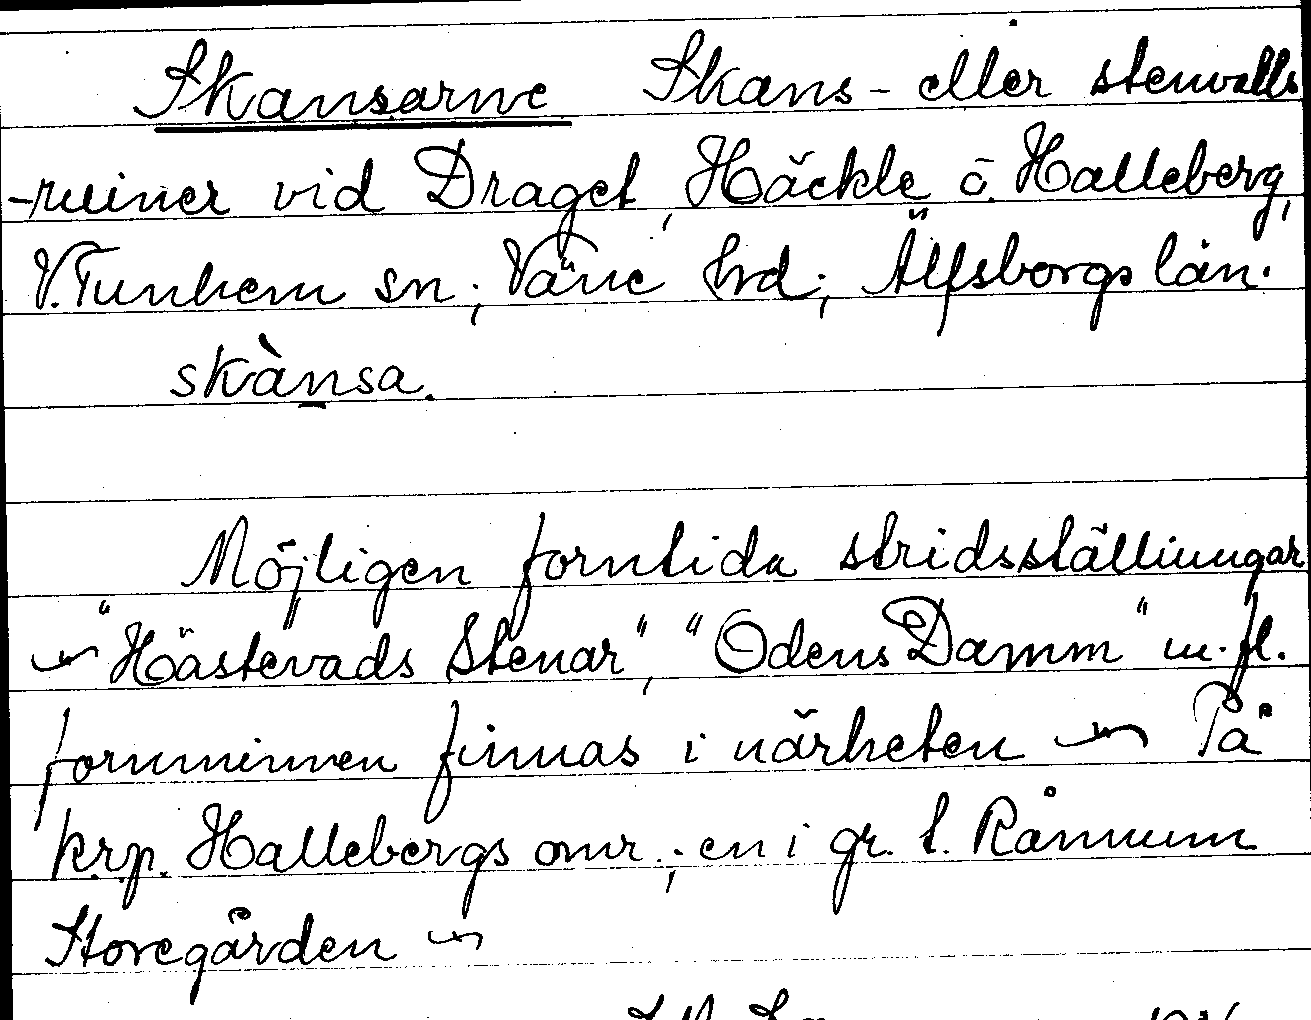 Skansarne Skans- eller stenvalls
-ruiner vid Draget, Häckle ö. Halleberg,
V. Tunhem sn; Väne hrd; Älfsborgs län.
skànsa.
Möjligen forntida stridsställningar
"Hästevads Stenar", "Odens Damm" m. fl.
fornminnen finnas i närheten På
krp. Hallebergs omr.; en i gr. t. Rånnum
Storegården